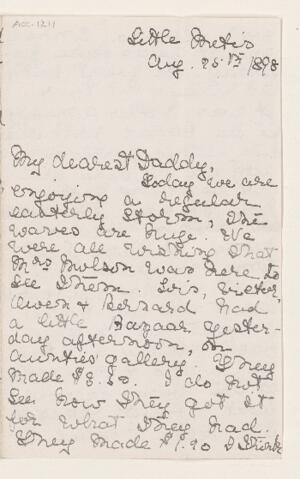 ACC. 1211
Little Metis
Aug. 25th 1898
My dearest Daddy,
Today we are
enjoying a regular
easterly storm, the
waves are huge. We
were all wishing that
Mrs Molson was here to
see them. Lois, Victor,
Owen & Bernard had
a little Bazaar yester-
day afternoon, on
Aunties gallery. They
made $3.50. I do not
see how they got it
for what they had.
They made $1.90 I think